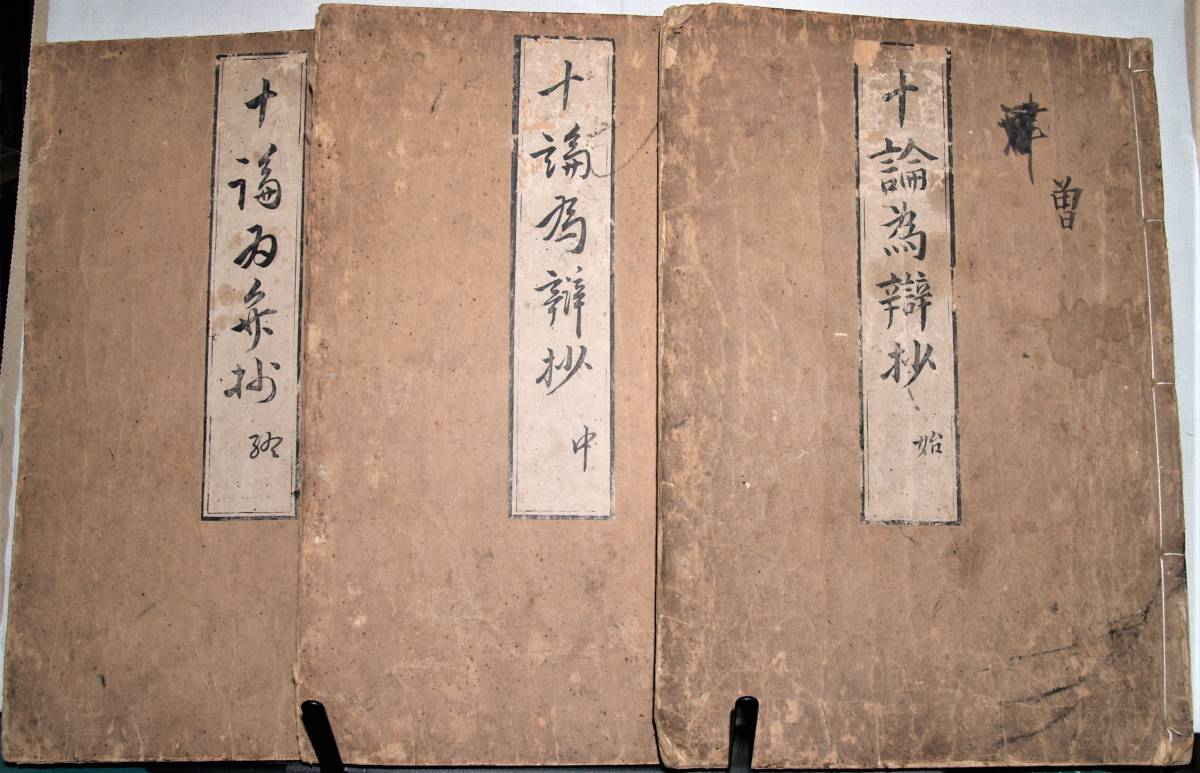 十論為辯抄
始
曽
十論為辯抄
中
十論為弁抄
終